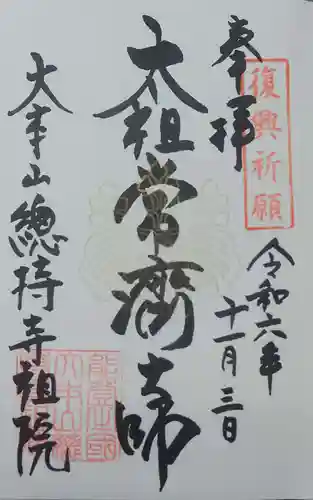 奉拝
復興祈願
令和六年
十一月三日
太祖常濟大師
大本山總持寺祖院